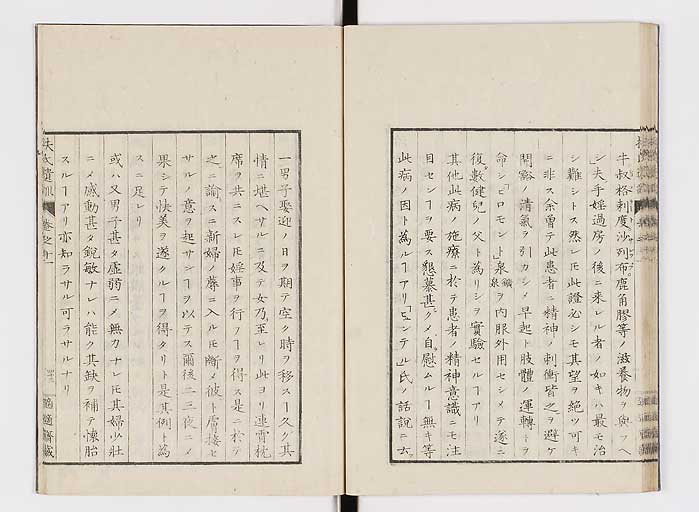 牛叔格剌度沙列布鹿角膠等ノ滋養物ヲ與フヘ
シ夫手婬過房ノ後ニ来レル者ノ如キハ最モ治
シ難シトス然レ𪜈此證必シモ其望ヲ絶ツ可キ
ニ非ス余曽テ此患者ニ精神ノ刺衝皆之ヲ避ケ
間谿ノ清氣ヲ引カシメ早起ト肢體ノ運轉トヲ
命シ「ピロモント」泉鑛泉ヲ内服外用セシメテ遂ニ
復數健兒ノ父ト為リシヲ實驗セルヿアリ
其他此病ノ施療ニ於テ患者ノ精神意識ニモ注
目センヿヲ要ス懇慕甚クメ自慰ムルヿ無キ等
此病ノ因ト為ルヿアリ「ヒンテル」氏ノ話説ニ云
一男子娶迎ノ日ヲ期テ空ク時ヲ移スヿ久ク其
情ニ堪ヘサルニ及テ女乃至レリ此ヨリ連霄枕
席ヲ共ニスレ𪜈婬事ヲ行フヿヲ得ス是ニ於テ
之ニ諭スニ新婦ノ蓐ニ入ル𪜈断メ彼ト膚接セ
サルノ意ヲ起サンヿヲ以テス爾後二三夜ニメ
果シテ快美ヲ遂クルヿヲ得タリト是其例ト為
スニ足レリ
或ハ又男子甚タ虚弱ニメ無力ナレ𪜈其婦少壮
ニメ感動甚タ鋭敏ナレハ能ク其缺ヲ補テ懐胎
スルヿアリ亦知ラサル可ラサルナリ
扶氏遺訓 卷之廿一
適適齋藏